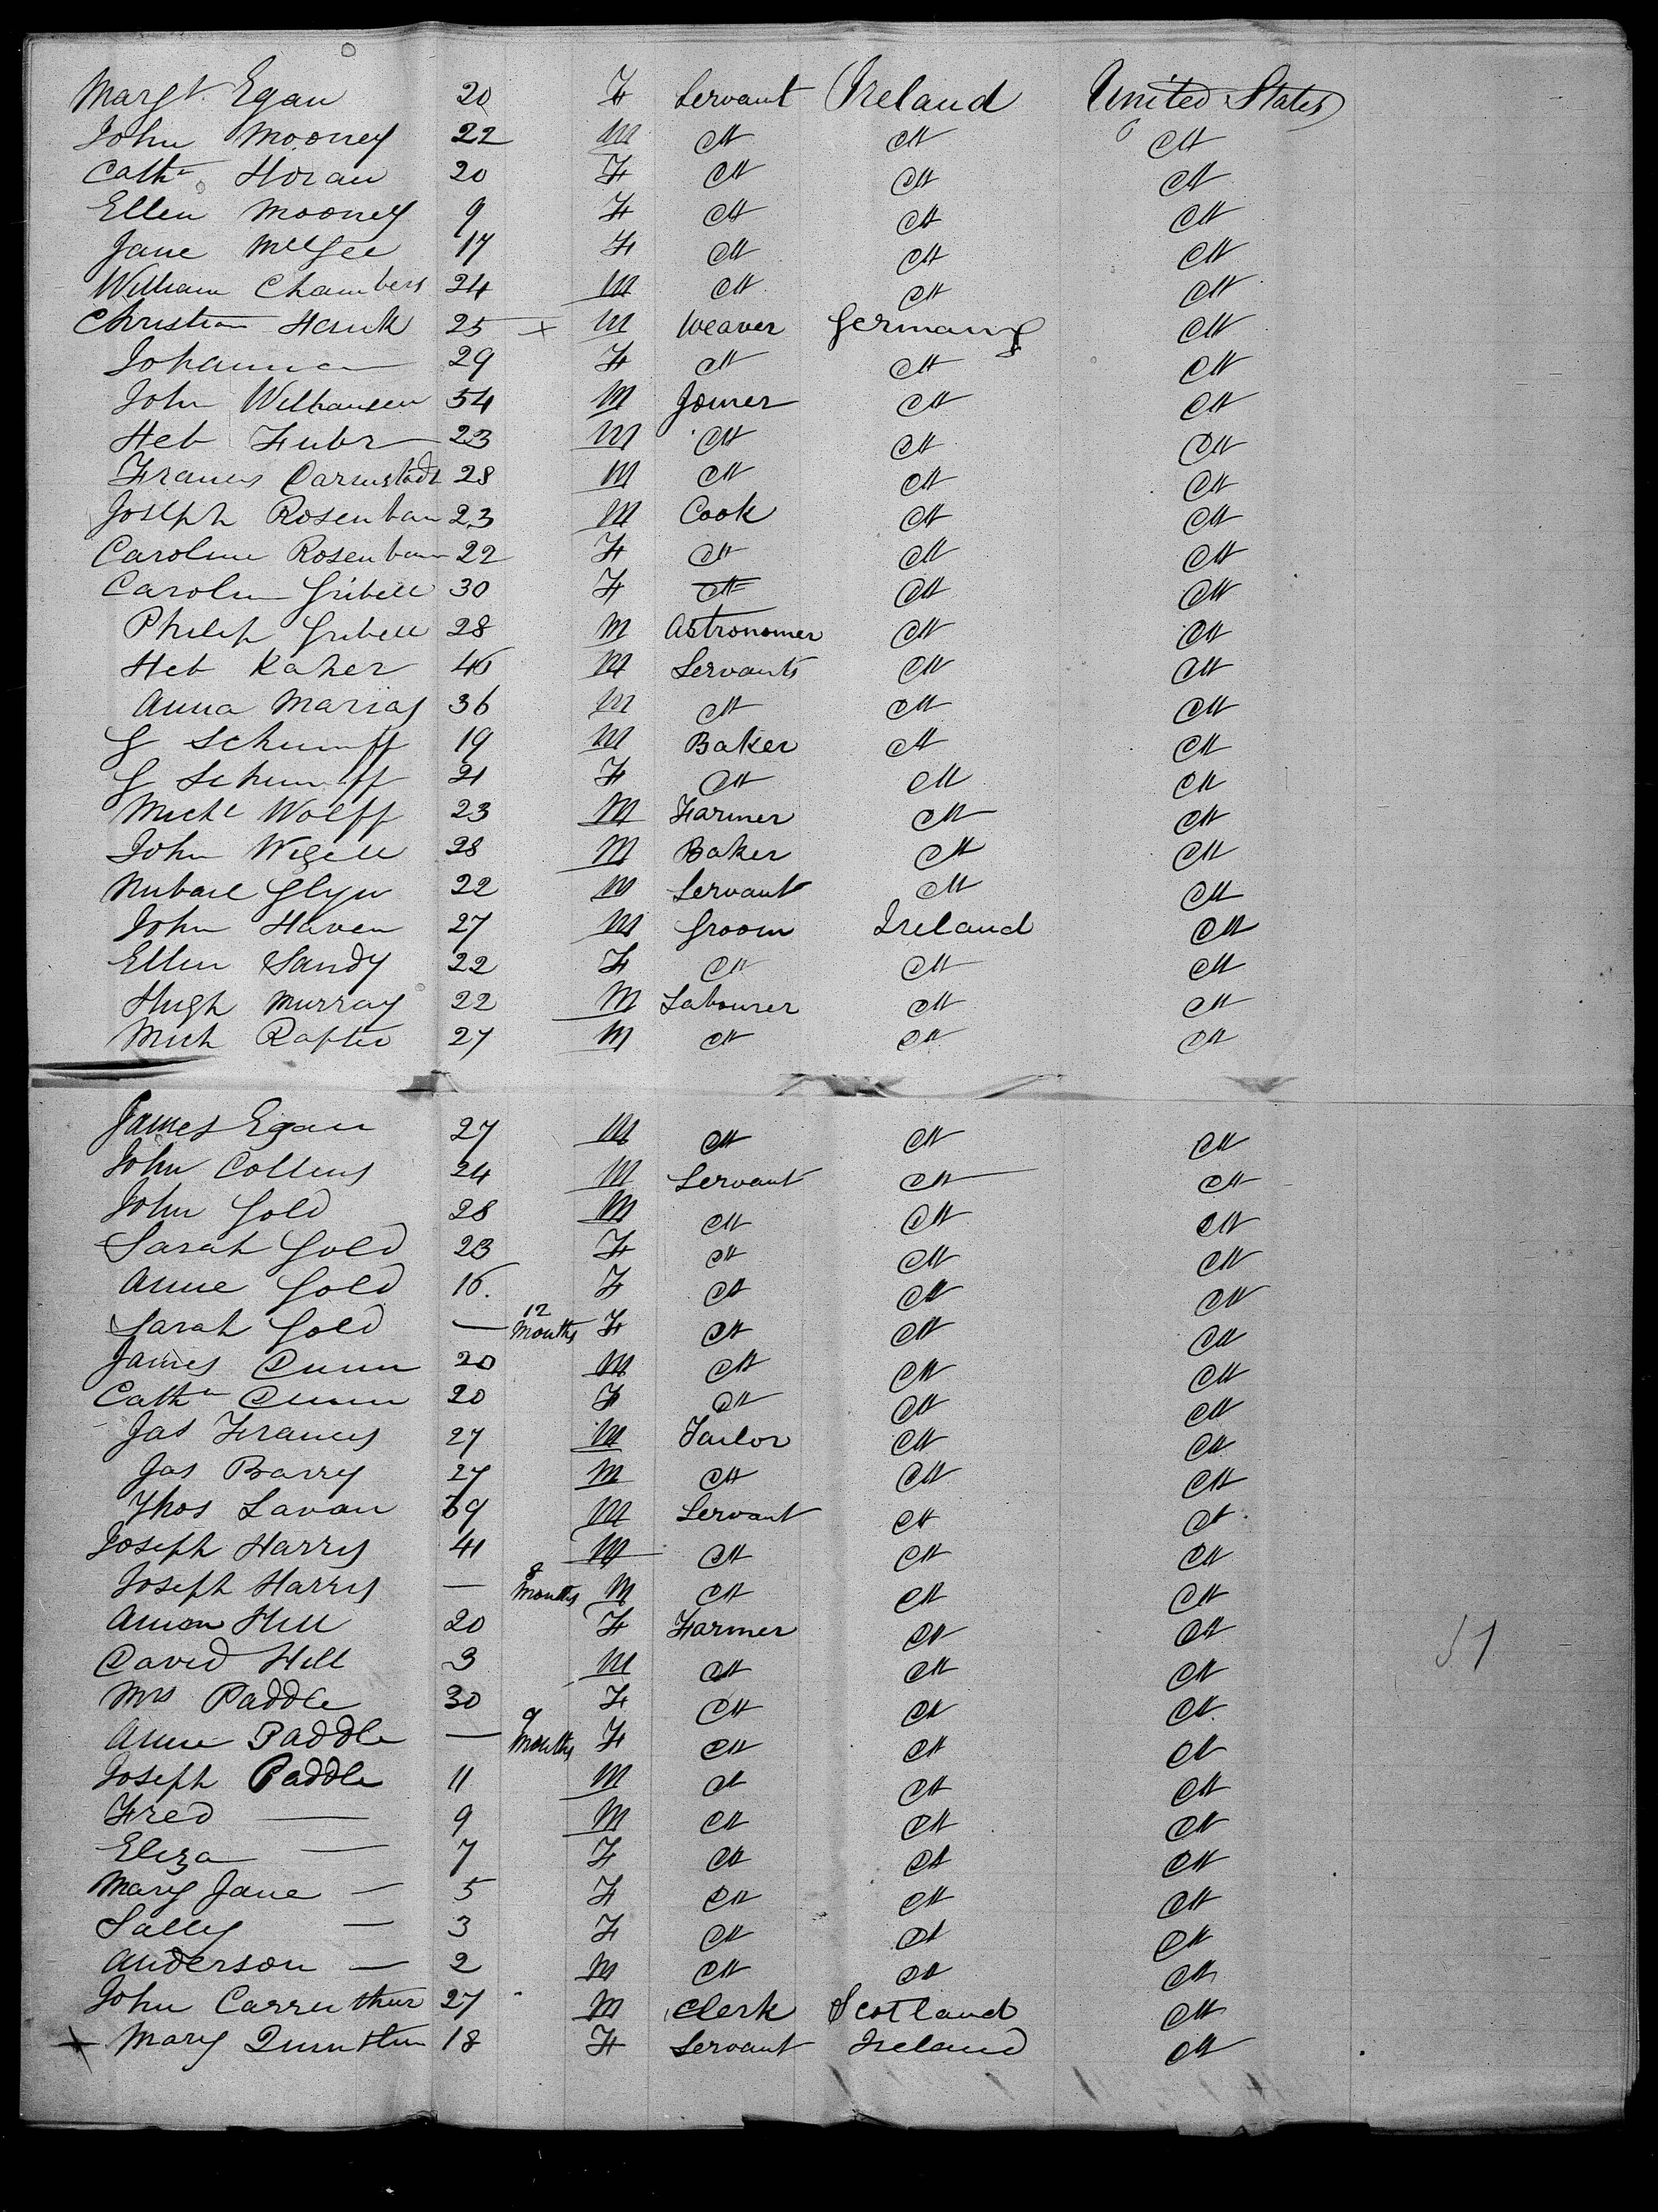 Margt Egan 20 F Servant Ireland United States
John Mooney 22 M do do do
Cathn Horan 20 F do do do
Ellen Mooney 9 F do do do
Jane McGee 17 F do do do
William Chambers 24 M do do do
Christian Hauk 25 x M Weaver Germany do
Johanna — 29 F do do do
John Welhausen 54 M Joiner do do
Heb Fubr 23 M do do do
Francis Darmstadt 28 M do do do
Joseph Rosenbau 23 M Cook do do
Caroline Rosenbaum 22 F do do do
Carolin Gribell 30 F do do do
Philip Gribell 28 M Astronomer do do
Heb Kaher M Servants do do
Anna Marias 36 M do do do
G Schumff 19 M Baker do do
G Schumff 21 F do do do
Michl Wolff 23 M Farmer do do
John 28 M Baker do do
Glyn 22 M Servant do do
John Haven 27 M Groom Ireland do
Ellen Sandy 22 F do do do
Hugh Murray 22 M Labourer do do
Mich 27 M do do do
James Egan 27 M do do do
John Collins 24 M Servant do do
John Gold 28 M do do do
Sarah Gold 23 F do do do
Anne Gold F do do do
Sarah Gold — 12 Months F do do do
James Dunn 20 M do do do
Cathn Dunn 20 F do do do
Jas Francis 27 M Tailor do do
Jas Barry 27 M do do do
Thos Lavan 69 M Servant do do
Joseph Harris 41 M do do do
Joseph Harris — 8 Months M do do do
Hill 20 F Farmer do do
David Hill 3 M do do do
Mrs Paddle 30 F do do do
Anne Paddle — 9 Months F do do do
Joseph Paddle 11 M do do do
Fred — 9 M do do do
Eliza — 7 F do do do
Mary Jane — 5 F do do do
Sally — 3 F do do do
Anderson — 2 M do do do
John Carruthur 27 M Clerk Scotland do
x Mary 18 F Servant Ireland do
51